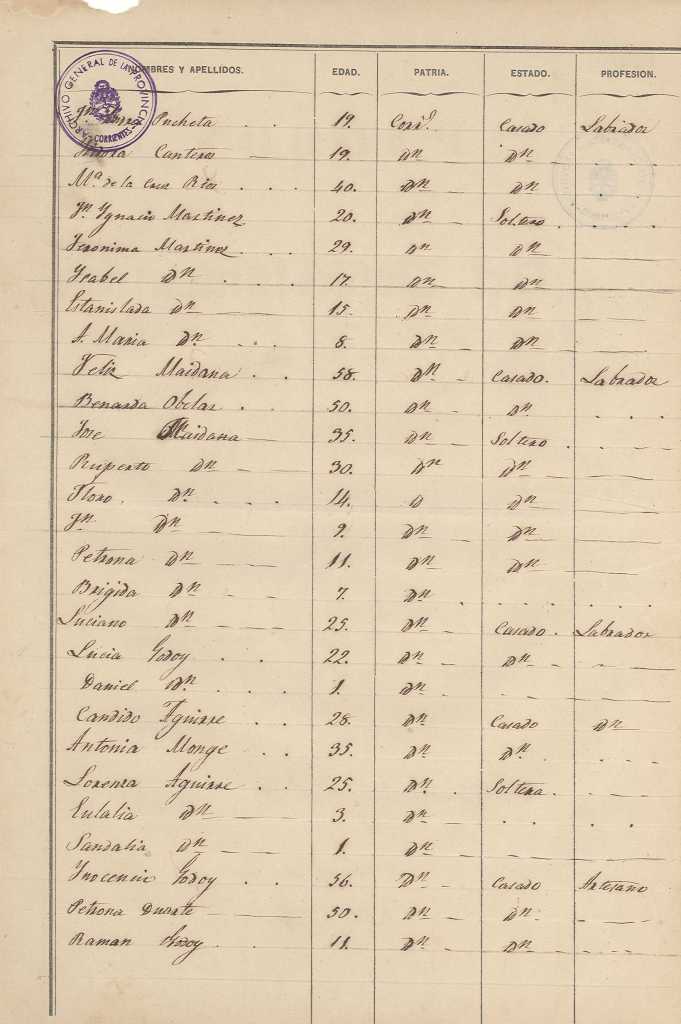 NOMBRES Y APELLIDOS. EDAD. PATRIA. ESTADO. PROFESION.
ARCHIVO GENERAL DE LA PROVINCIA CORRIENTES
Pucheta . . 19. Corr.s Casado Labrador
Canteros — 19. Dn Dn
Ma de la Cruz Rios . . . 40. Dn Dn
Jn Ygnacio Martinez 20. Dn Soltero
Jeronima Martinez . . 29. Dn Dn
Ysabel Dn . . . 17. Dn Dn
Estanislada Dn — 15. Dn Dn
J. Maria Dn . . . 8. Dn Dn
Feliz Maidana . . 58. Dn Casado. Labrador
Benarda Obelar . 50. Dn Dn . . .
Jose Maidana — 35. Dn Soltero
Ruperto Dn — 30. Dn Dn
Floro. Dn . . . 14. D Dn
Jn Dn — 9. Dn Dn
Petrona Dn — 11. Dn Dn
Brigida Dn — 7. Dn . . . .
Luciano Dn — 25. Dn Casado. Labrador
Lucia Godoy . . 22. Dn Dn
Daniel Dn . . . 1. Dn
Candido Aguirre . . 28. Dn Casado Dn
Antonia Monge . . 35. Dn Dn . . .
Lorenza Aguirre . . 25. Dn. Soltera.
Eulalia Dn — 3. Dn . . .
Sandalia Dn — 1. Dn
Ynocencio Godoy . . 56. Dn Casado Artesano
Petrona Duarte — 50. Dn Dn
Raman Godoy . . 11. Dn Dn